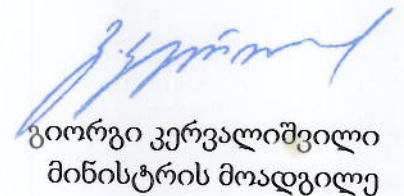 გიორგი კერვალიშვილი
მინისტრის მოადგილე